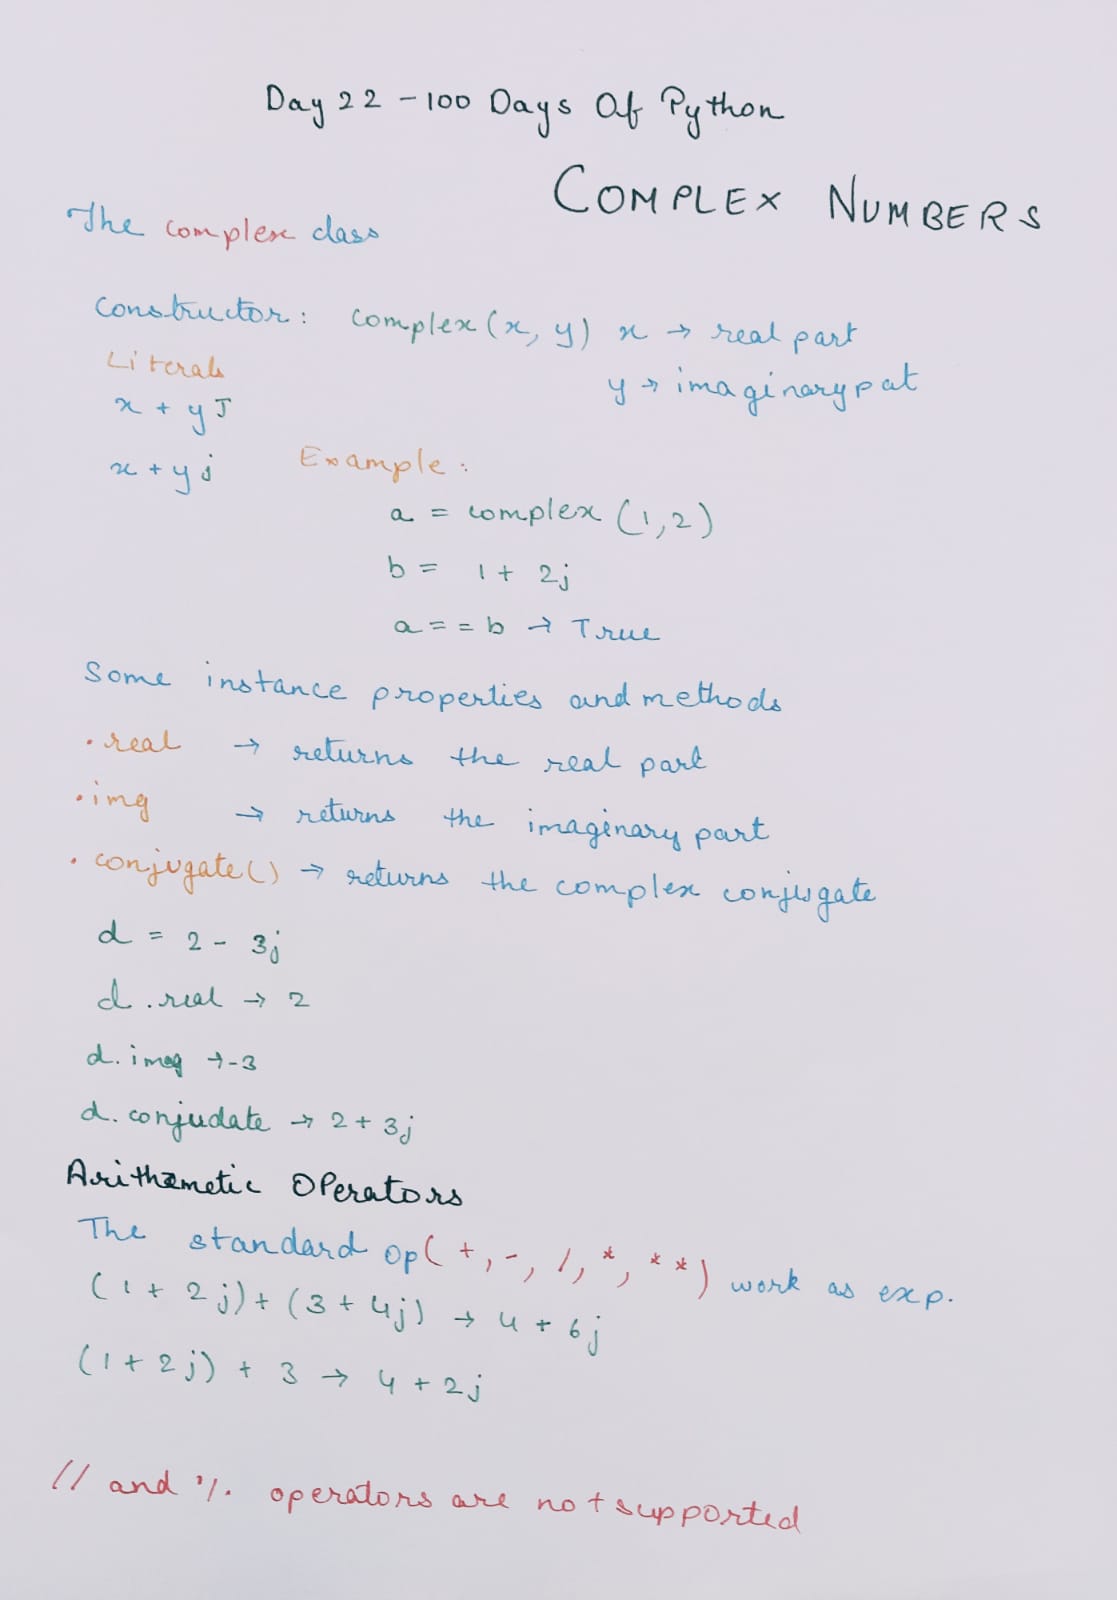 Day 22 - 100 Days Of Python
COMPLEX NUMBERS
The complex class
Constructor: complex(x, y) x → real part
y → imaginary pat
Literals
x + yJ
x + yj
Example:
a = complex (1,2)
b = 1 + 2j
a == b → True
Some instance properties and methods
.real → returns the real part
.img → returns the imaginary part
.conjugate() → returns the complex conjugate
d = 2 - 3j
d.real → 2
d.imag → -3
d.conjudate → 2 + 3j
Arithmetic Operators
The standard op( +, -, /, *, **) work as exp.
(1 + 2j) + (3 + 4j) → 4 + 6j
(1 + 2j) + 3 → 4 + 2j
// and % operators are not supported